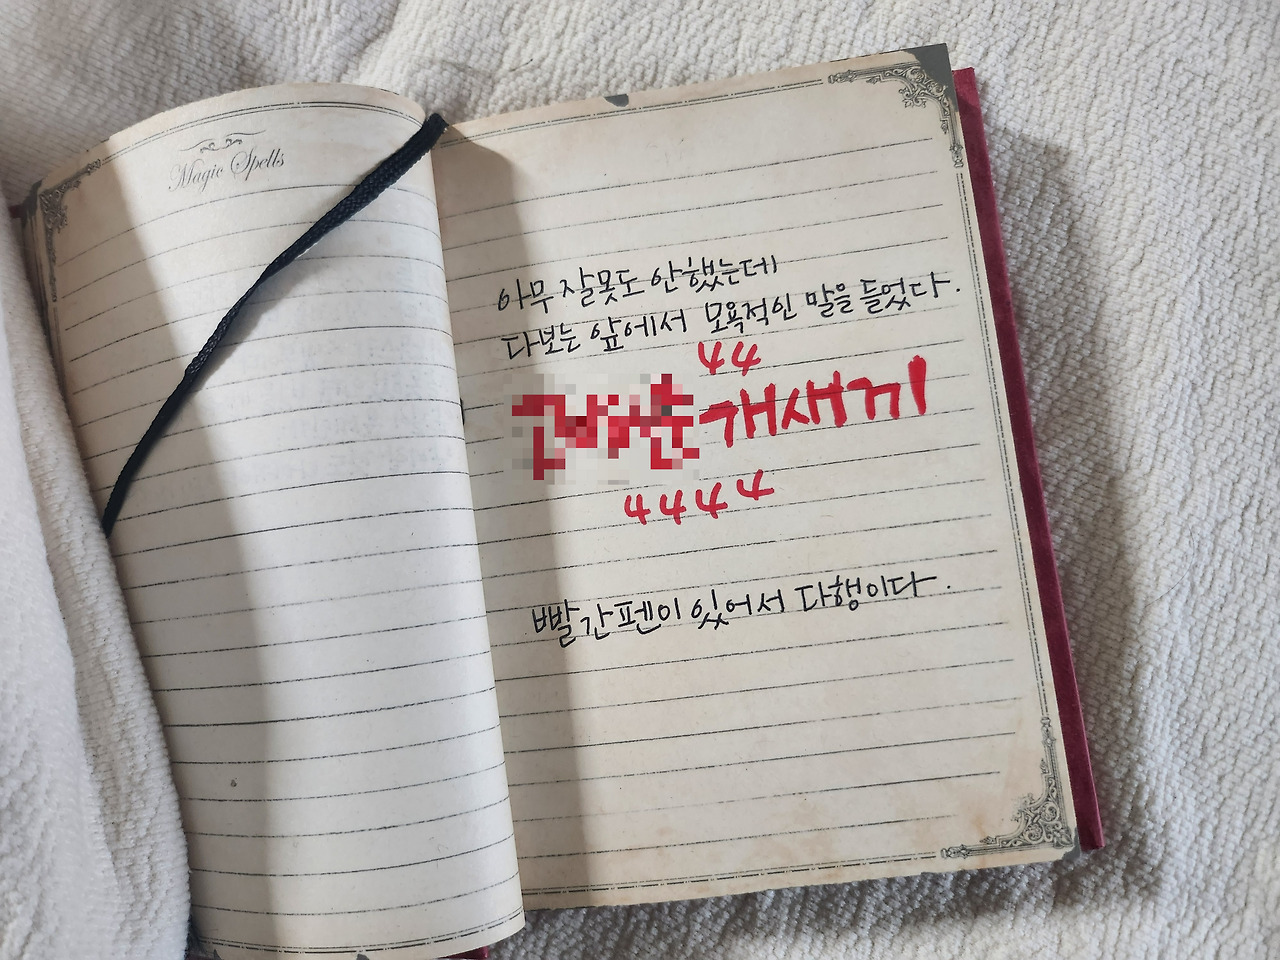 Magic Spells
아무 잘못도 안했는데
다보는 앞에서 모욕적인 말을 들었다.
44
개새끼
4444
빨간펜이 있어서 다행이다.